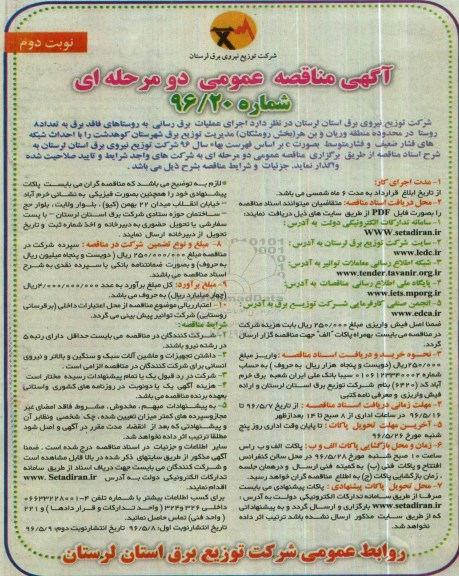 نوبت دوم
شرکت توزیع نیروی برق لرستان
آگهی مناقصه عمومی دو مرحله ای
شماره ۹۶/۲۰
شرکت توزیع نیروی برق استان لرستان در نظر دارد اجرای عملیات برق رسانی به روستاهای فاقد برق به تعداد۸
روستا در محدوده منطقه وریان و بن هر(بخش رومشکان) مدیریت توزیع برق شهرستان کوهدشت را با احداث شبکه
های فشار ضعیف و فشارمتوسط بصورت c بر اساس فهرست بهاء سال ۹۶ شرکت توزیع نیروی برق استان لرستان به
شرح اسناد مناقصه از طریق برگزاری مناقصه عمومی دو مرحله ای به شرکت های واجد شرایط و تایید صلاحیت شده
واگذار نماید. جزئیات و شرایط مناقصه بشرح ذیل می باشد.
۱- مدت اجرای کار:
از تاریخ ابلاغ قرارداد به مدت ۶ ماه شمسی می باشد.
۲- محل دریافت اسناد مناقصه: متقاضیان میتوانند اسناد مناقصه
را بصورت فایل PDF از طریق سایت های ذیل دریافت نمایند:
۱- سامانه تدارکات الکترونیکی دولت به آدرس :
www.setadiran.ir
۲- سایت شرکت توزیع برق لرستان به آدرس :
www.ledc.ir
۳- شبکه اطلاع رسانی معاملات توانیر به آدرس:
www.tender.tavanir.org.ir
۴- پایگاه ملی اطلاع رسانی مناقصات به آدرس:
www.iets.mporg.ir
۵- انجمن صنفی کارفرمایی شرکت توزیع برق به آدرس:
www.edca.ir
ضمنا اصل فیش واریزی مبلغ ۲۵۰/۰۰۰ ریال بابت هزینه شرکت
در مناقصه می بایست بهمراه پاکات "الف" جهت مناقصه گزار ارسال
گردد.
۳- نحوه خرید و دریافت اسناد مناقصه: واریز مبلغ
۲۵۰/۰۰۰ریال (دویست و پنجاه هزار ریال به حروف) به حساب
آباد کد (۶۴۲۰) بنام شرکت توزیع برق استان لرستان و ارائه
فیش واریزی و معرفی نامه کتبی
۴- مهلت زمانی دریافت اسناد مناقصه : از تاریخ ۹۶/۵/۷ تا
۹۶/۵/۱۶ در ساعات اداری از ۸ صبح تا ۱۴ بعدازظهر
۵- آخرین مهلت تحویل پاکات : تا پایان وقت اداری روز پنج
شنبه مورخ ۹۶/۵/۲۶
۶- زمان و محل بازگشایی پاکات الف و ب : پاکات الف و ب راس
ساعت ۱۰ صبح شنبه مورخ ۹۶/۵/۲۸ در محل سالن کنفرانس
افتتاح و پاکات فنی (ب) به کمیته فنی ارسال و درهمان جلسه
زمان بازگشایی پاکات (ج) به اطلاع مناقصه گران خواهد رسید.
۷- محل تحویل پاکات پیشنهادی : پاکات پیشنهادی می بایست
صرفا از طریق سامانه تدارکات الکترونیکی دولت به آدرس :
www.setadiran.ir بارگزاری و ارسال گردد و به پیشنهاداتی
که از طریق سایت مذکور ارسال نشده باشد ترتیب اثر داده
نخواهد شد.
*لازم به توضیح می باشد که مناقصه گران می بایست پاکات
پیشنهادی خود را همچنین بصورت فیزیکی به نشانی خرم آباد
- خیابان انقلاب میدان ۲۲ بهمن (کیو) ، بلوار ولایت، بلوار حج
- ساختمان حوزه ستادی شرکت برق استان لرستان - با پست
سفارشی یا تحویل حضوری به دبیرخانه و اخذ شماره ثبت و تاریخ
تحویل از دبیرخانه ارسال نمایند .
۸- مبلغ و نوع تضمین شرکت در مناقصه : سپرده شرکت در
مناقصه مبلغ ۲۵۰/۰۰۰/۰۰۰ ریال ( دویست و پنجاه میلیون ریال
به حروف) و بصورت ضمانتنامه بانکی یا سپرده نقدی به شرح
اسناد مناقصه می باشد.
۹- مبلغ برآورد: کل مبلغ برآورد به عدد ۴/۰۰۰/۰۰۰/۰۰۰ریال
(چهار میلیارد ریال) به حروف می باشد.
۱۰- اعتبارریالی موضوع مناقصه از محل اعتبارات داخلی (برقرسانی
روستایی) شرکت توانیر پیش بینی می گردد.
شرایط مناقصه:
۱- شرکت کنندگان در مناقصه می بایست حداقل دارای رتبه ۵
در رشته نیرو باشند.
۲- داشتن تجهیزات و ماشین آلات سبک و سنگین و بالابر و نیروی
انسانی برای شرکت کنندگان در مناقصه الزامی است .
۳- شرکت در رد قبول یک یا تمام پیشنهادات رسیده مختار است
۴- هزینه آگهی یک یا دونوبت در روزنامه های کثیری واستانی
بعهده برنده مناقصه می باشد.
۵- به پیشنهادات مبهم، مخدوش، مشروط، فاقد امضای غیر
مجازوسپرده های کمتر میزان تعیین شده، چک شخصی ونظایر آن
و پیشنهاداتی که بعد از انقضاء مدت مقرر در آگهی و اصل شود
مطلقا ترتیب اثر داده نخواهد شد.
سایر اطلاعات و جزئیات در اسناد مناقصه درج شده است . ضمنا
آگهی مذکور از طریق سایتهای ذکر شده در بالا قابل مشاهده است
و شرکت کنندگان می بایست جهت دریاف اسناد از طریق سامانه
تدارکات الکترونیکی دولت به آدرس www.Setadiran.ir
اقدام نمایند.
داخلی ۳۲۶ و ۳۲۴ ( واحد تدارکات و قرار دادها ) و ۲۲۱
( واحد فنی) تماس حاصل نمائید.
تاریخ انتشارنوبت اول: ۹۶/۵/۸ تاریخ انتشارنوبت دوم: ۹۶/۵/۹
روابط عمومی شرکت توزیع برق استان لرستان